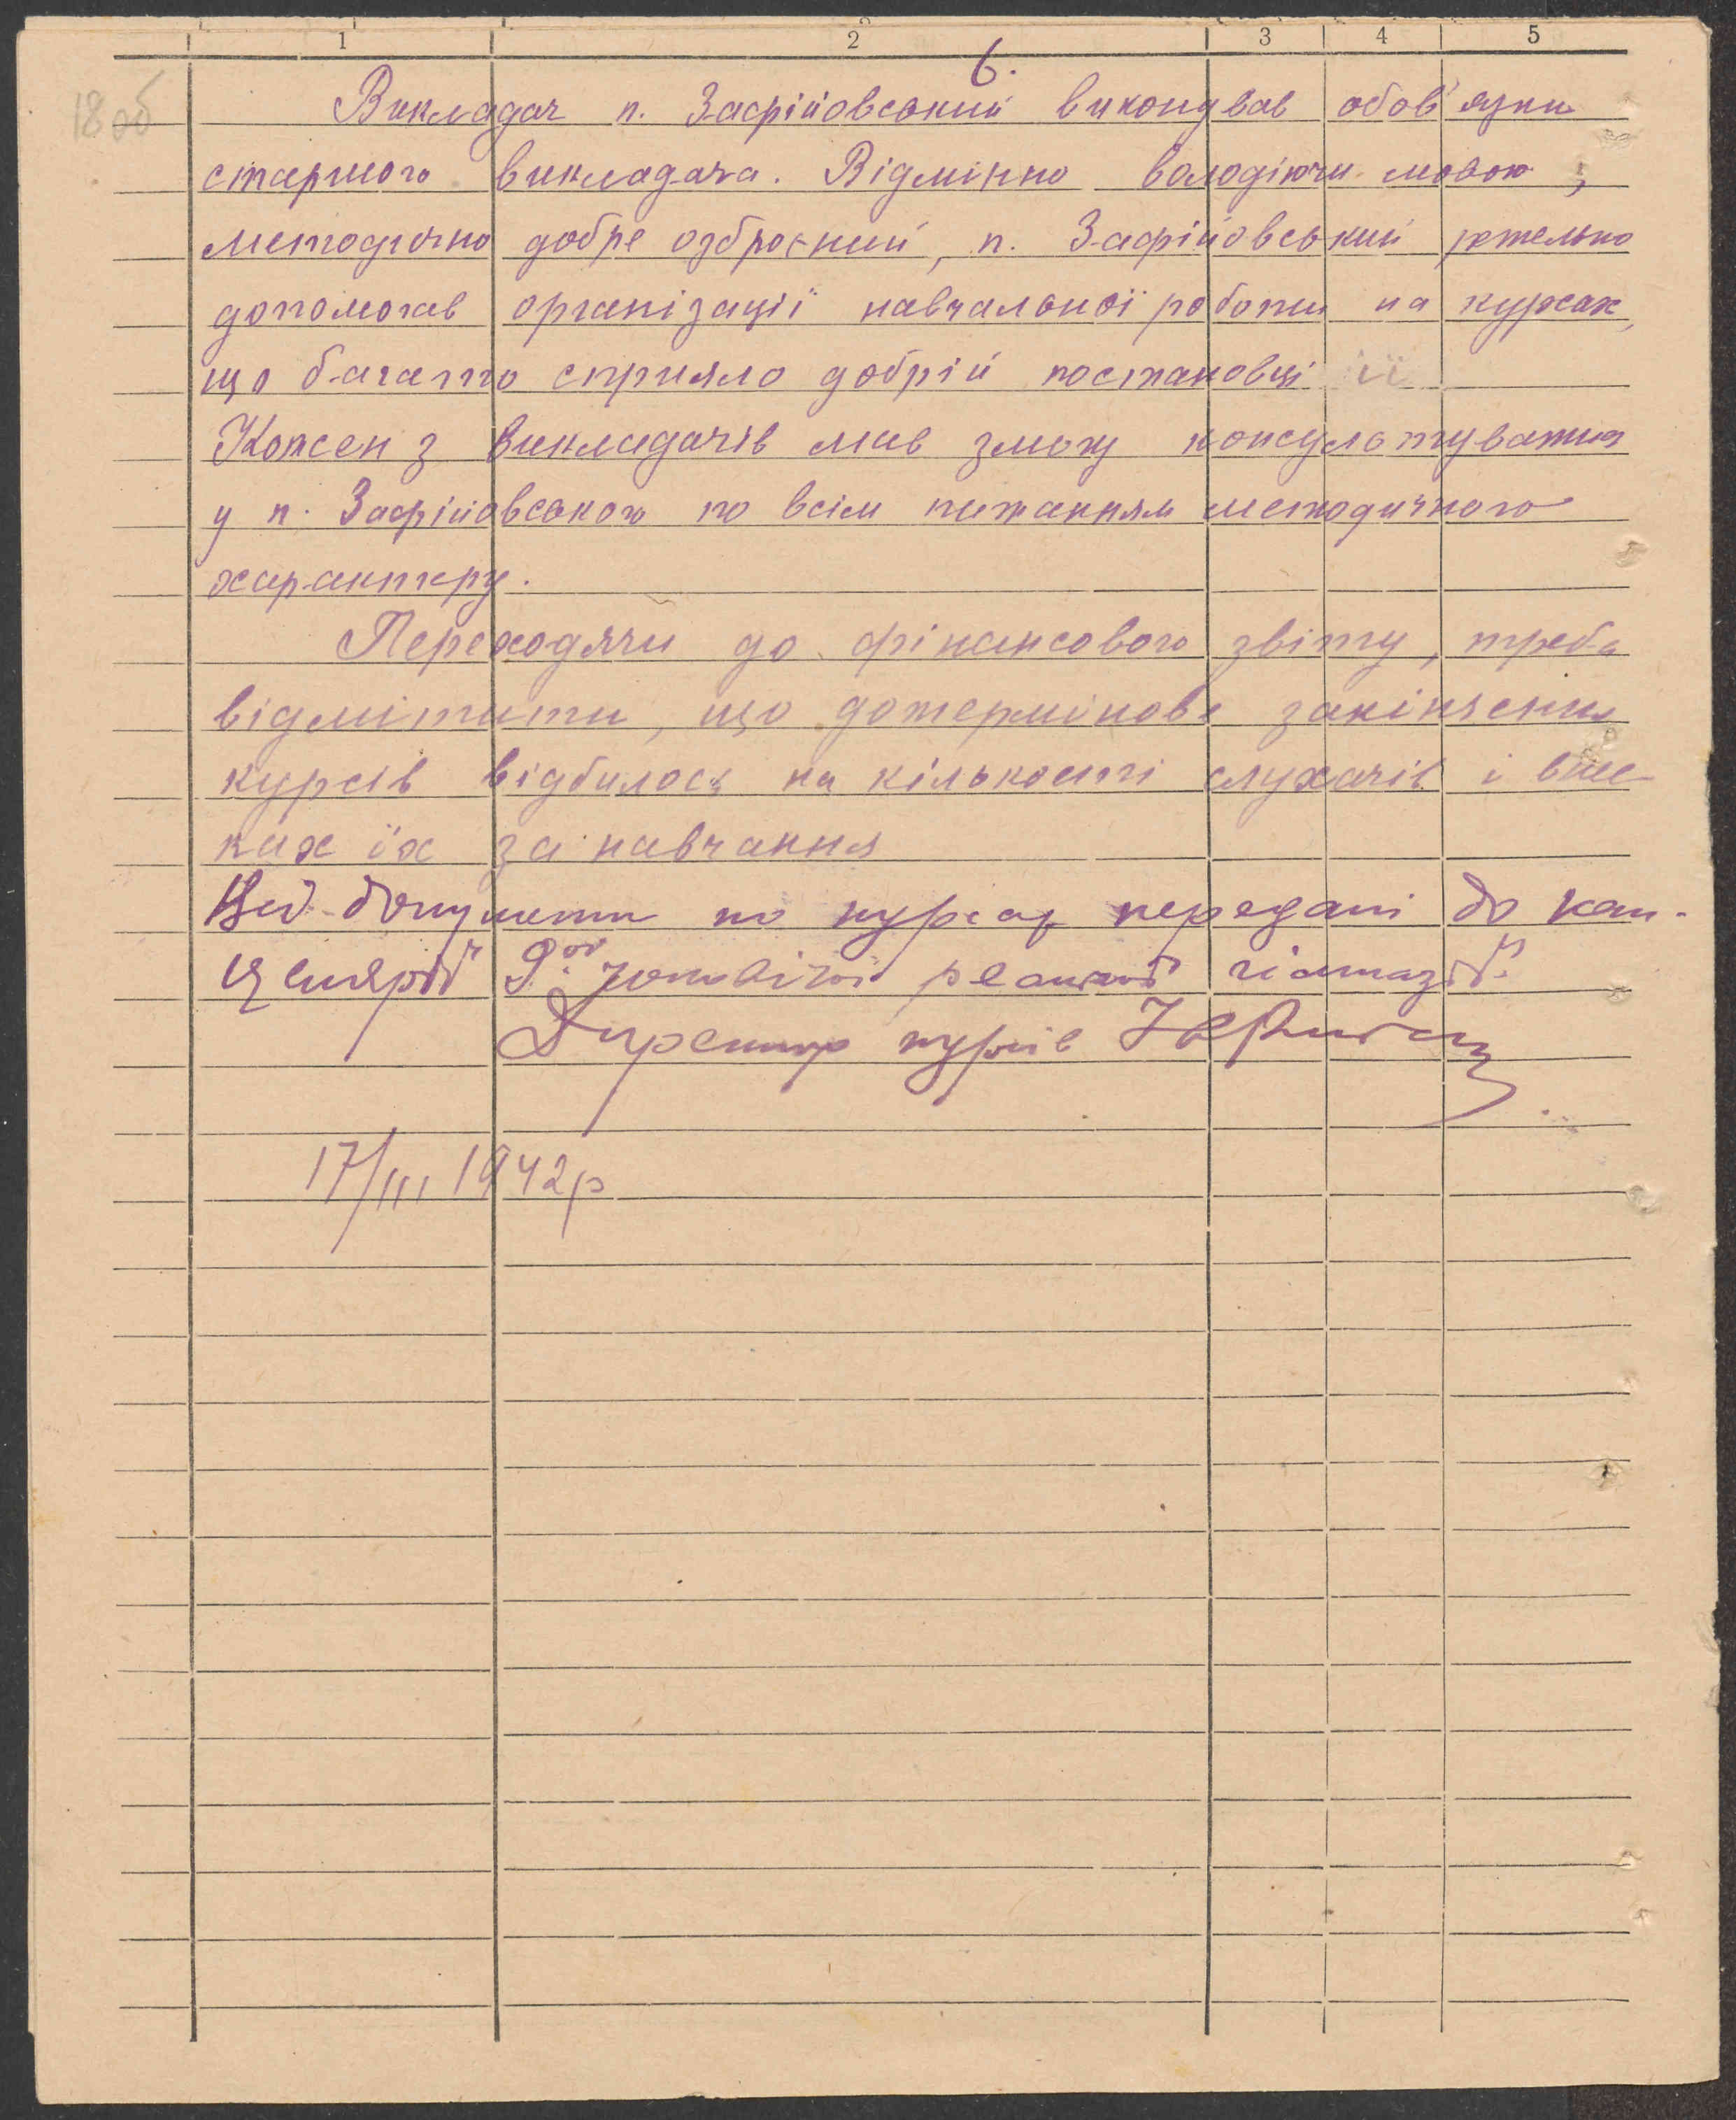 1 2 3 4 5
6.
18об
Викладач п. Зафійовський виконував обов'язки
старшого викладача. Відмінно володіючи мовою,
методично добре озброєний, п. Зафійовський ретельно
допомогав організації навчальної роботи на курсах,
що багато сприяло добрій постановці її
Кожен з викладачів мав змогу консультуватися
у п. Зафійовського по всім питанням методичного
характеру.
Переходячи до фінансового звіту, треба
відмітити, що дотермінове закінчення
курсів відбилось на кількості слухачів і внес
ках їх за навчання
Всі документи по курсах передані до кан-
целярії чоловічої гімназії.
Директор курсів
17/III 1942р